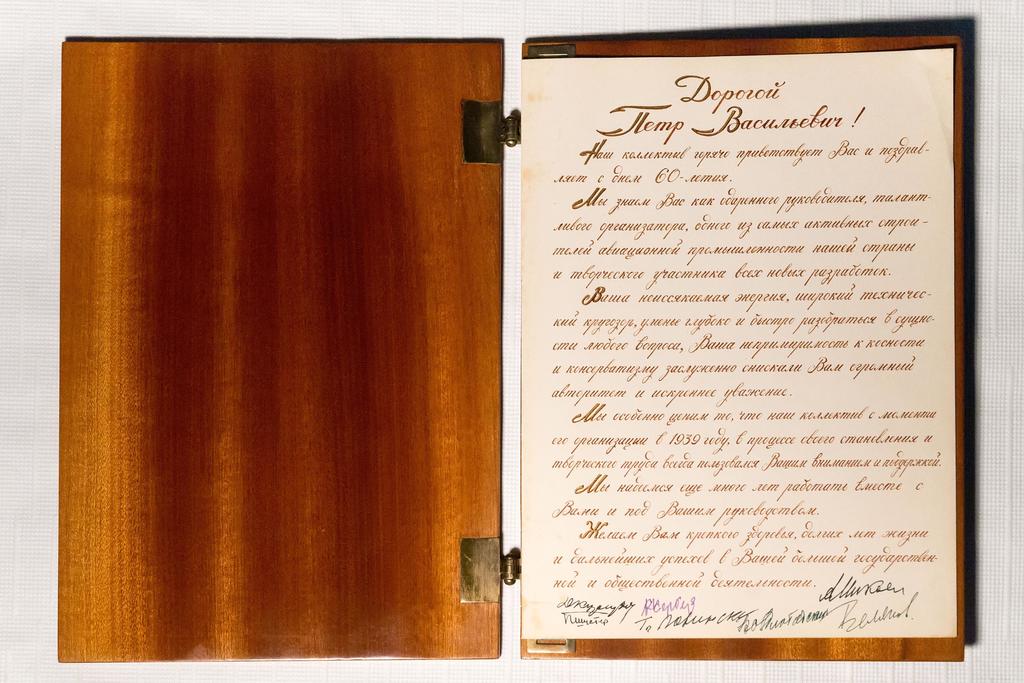 Дорогой
Петр Васильевич!
Наш коллектив горячо приветствует Вас и поздрав-
ляет с днем 60-летия.
Мы знаем Вас как одаренного руководителя, талант-
ливого организатора, одного из самых активных строи-
телей авиационной промышленности нашей страны
и творческого участника всех новых разработок.
Ваша неиссякаемая энергия, широкий техничес-
кий кругозор, уменье глубоко и быстро разобраться в сущно-
сти любого вопроса, Ваша непримиримость к косности
и консерватизму заслуженно снискали Вам огромный
авторитет и искреннее уважение.
Мы особенно ценим то, что наш коллектив с момента
его организации в 1939 году, в процессе своего становления и
творческого труда всегда пользовался Вашим вниманием и поддержкой.
Мы надеемся еще много лет работать вместе с
Вами и под Вашим руководством.
Желаем Вам крепкого здоровья, долгих лет жизни
и дальнейших успехов в Вашей большой государствен-
ной и общественной деятельности.
АМикоян
Беляков